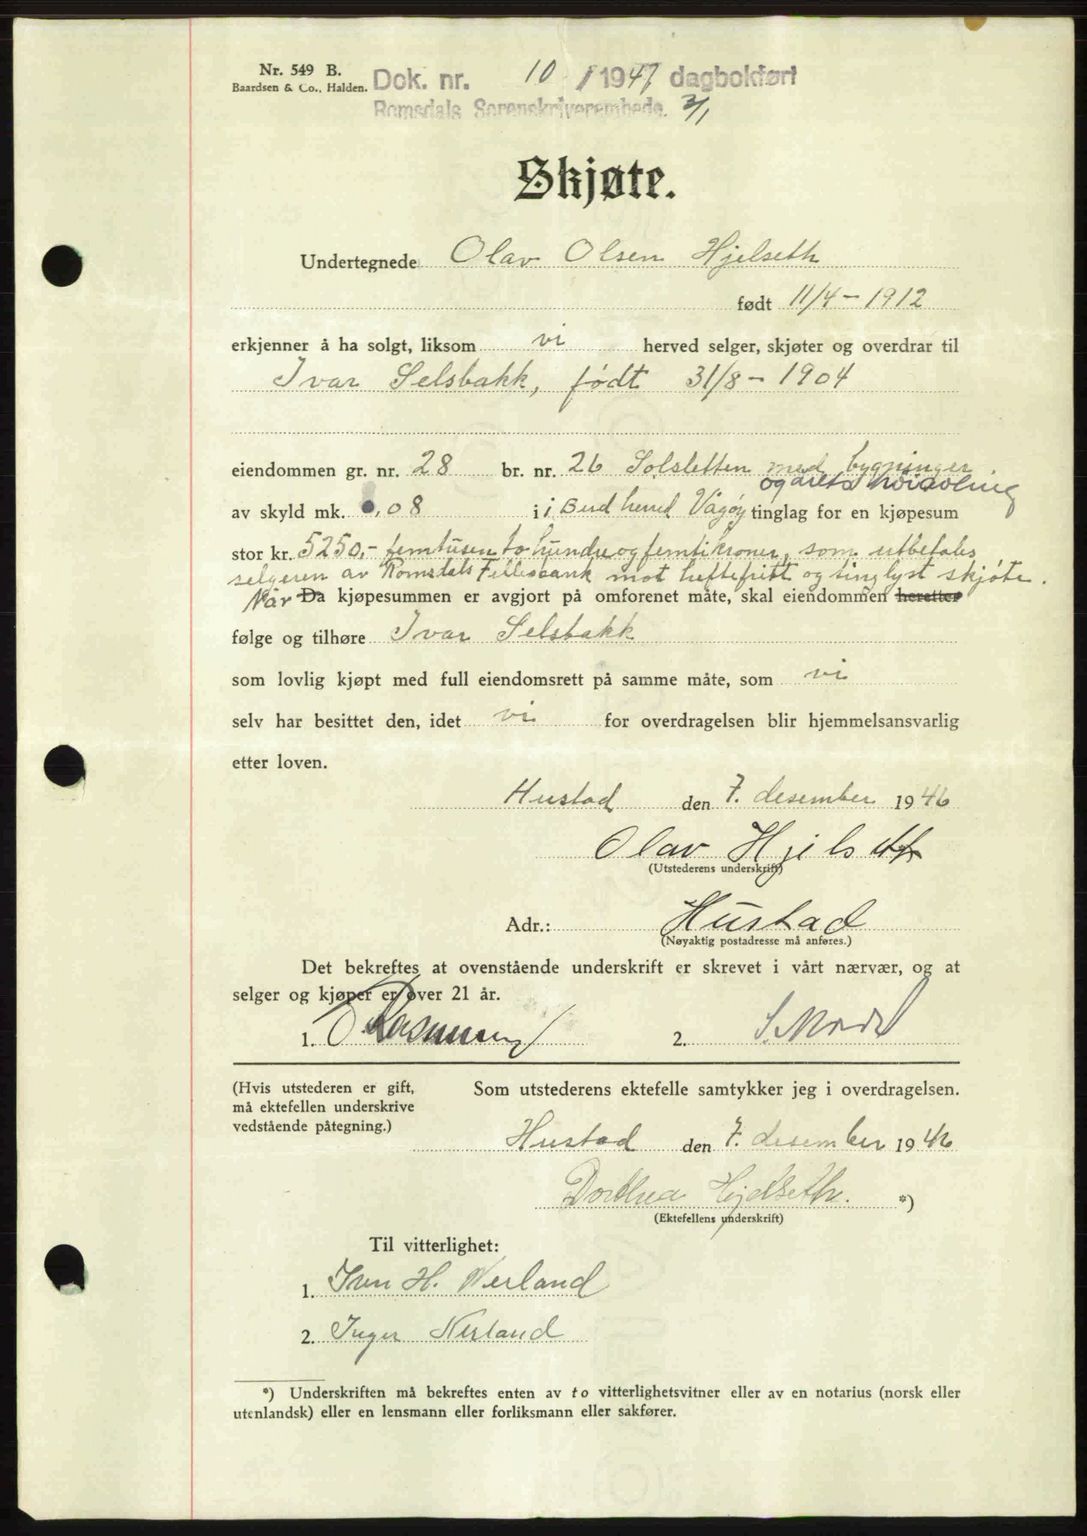 Nr. 549 B.
Baardsen & Co., Halden.
Dok. nr. 10 / 1947 dagbokført
Romsdals Sorenskriverembede. 3/1
Skjøte.
Undertegnede Olav Olsen Hjelseth
født 11/4 - 1912
erkjenner å ha solgt, liksom vi herved selger, skjøter og overdrar til
Ivar Selsbakk, født 31/8 - 1904
eiendommen gr. nr. 28 br. nr. 26 Solsletten med bygninger
og årets
av skyld mk. 0,08 i i Bud herred Vågøy tinglag for en kjøpesum
stor kr. 5250,- femtusen to hundre og femti kroner, som utbetales
selgeren av Romsdals Fellesbank mot heftefritt og tinglyst skjøte.
Når Da kjøpesummen er avgjort på omforenet måte, skal eiendommen heretter
følge og tilhøre Ivar Selsbakk
som lovlig kjøpt med full eiendomsrett på samme måte, som vi
selv har besittet den, idet vi for overdragelsen blir hjemmelsansvarlig
etter loven.
Hustad den 7. desember 1946
Olav Hjelseth
(Utstederens underskrift)
Adr.: Hustad
(Nøyaktig postadresse må anføres.)
Det bekreftes at ovenstående underskrift er skrevet i vårt nærvær, og at
selger og kjøper er over 21 år.
1. Rasmussen 2. S. Mork
(Hvis utstederen er gift,
må ektefellen underskrive
vedstående påtegning.)
Som utstederens ektefelle samtykker jeg i overdragelsen.
Hustad den 7. desember 1946
Dorthea Hjelseth. *)
(Ektefellens underskrift)
Til vitterlighet:
1. Iver H. Nerland
2. Inger Nerland
*) Underskriften må bekreftes enten av to vitterlighetsvitner eller av en notarius (norsk eller
utenlandsk) eller en lensmann eller forliksmann eller sakfører.